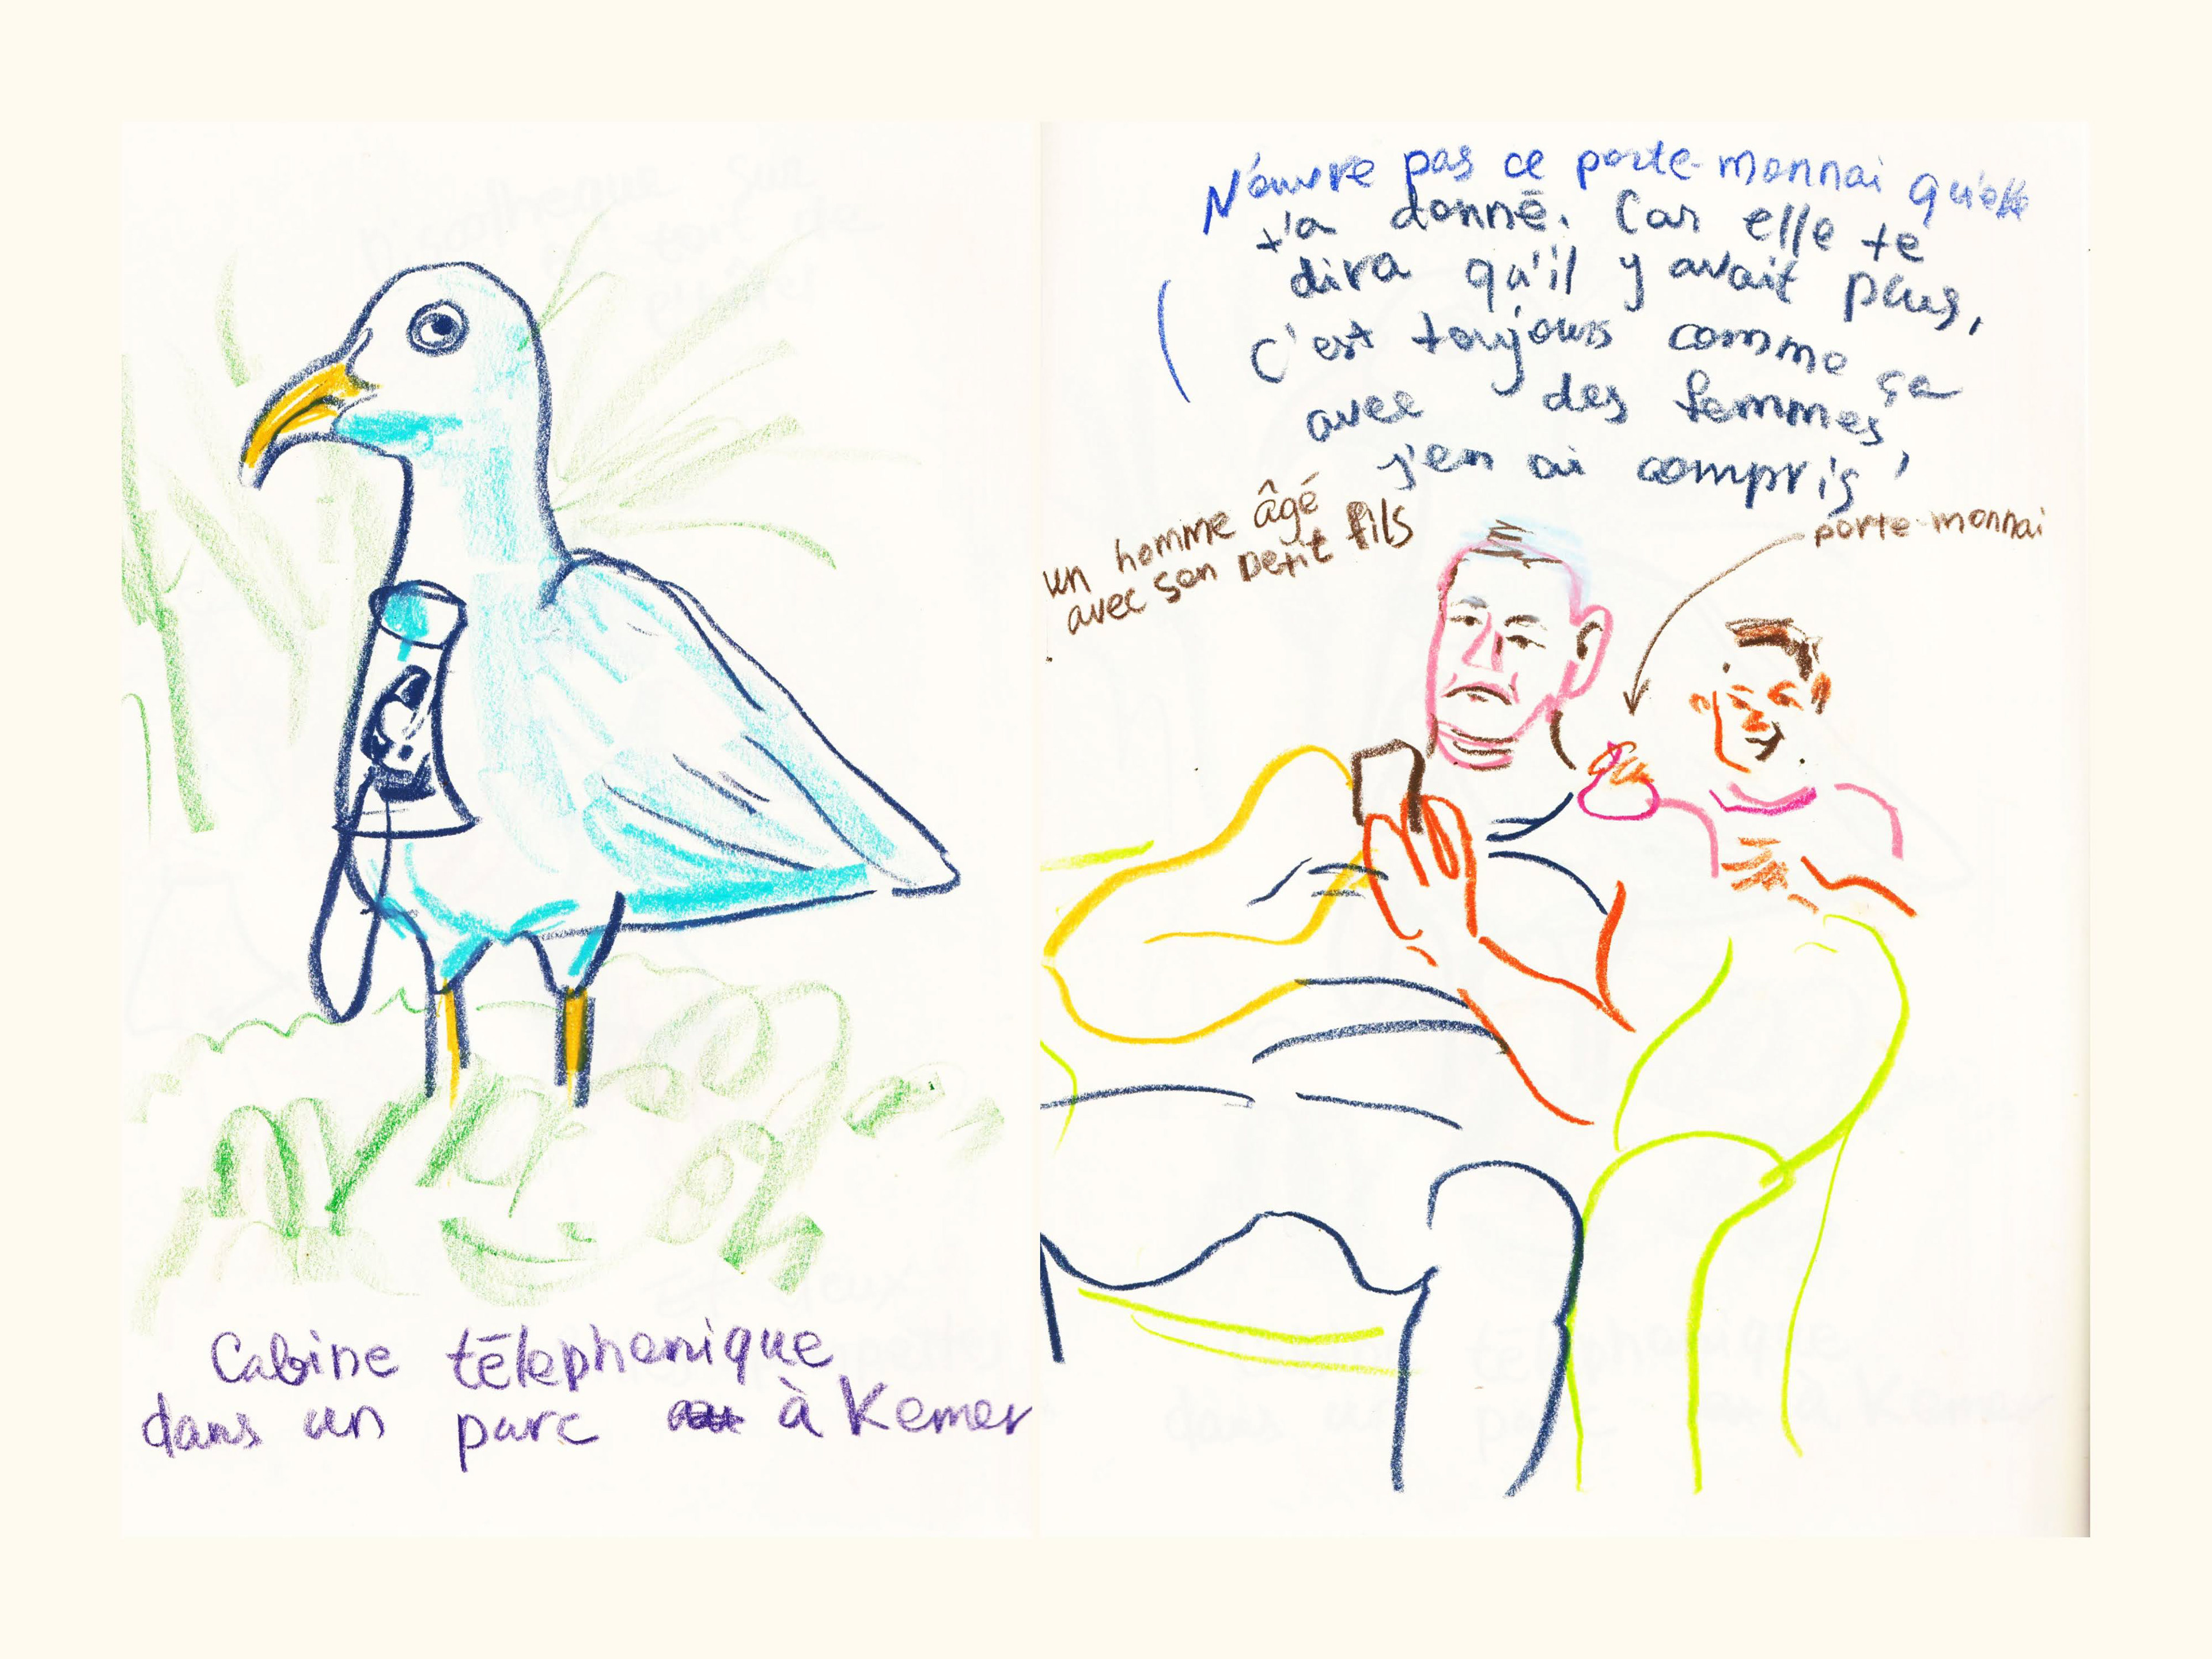 Cabine télephonique
dans un parc à Kemer
N'ouvre pas ce porte-monnai qu'elle
t'a donné. Car elle te
dira qu'il y avait plus,
C'est toujours comme ça
avec des femmes,
j'en ai compris
un homme âgé
avec son petit fils
porte-monnai